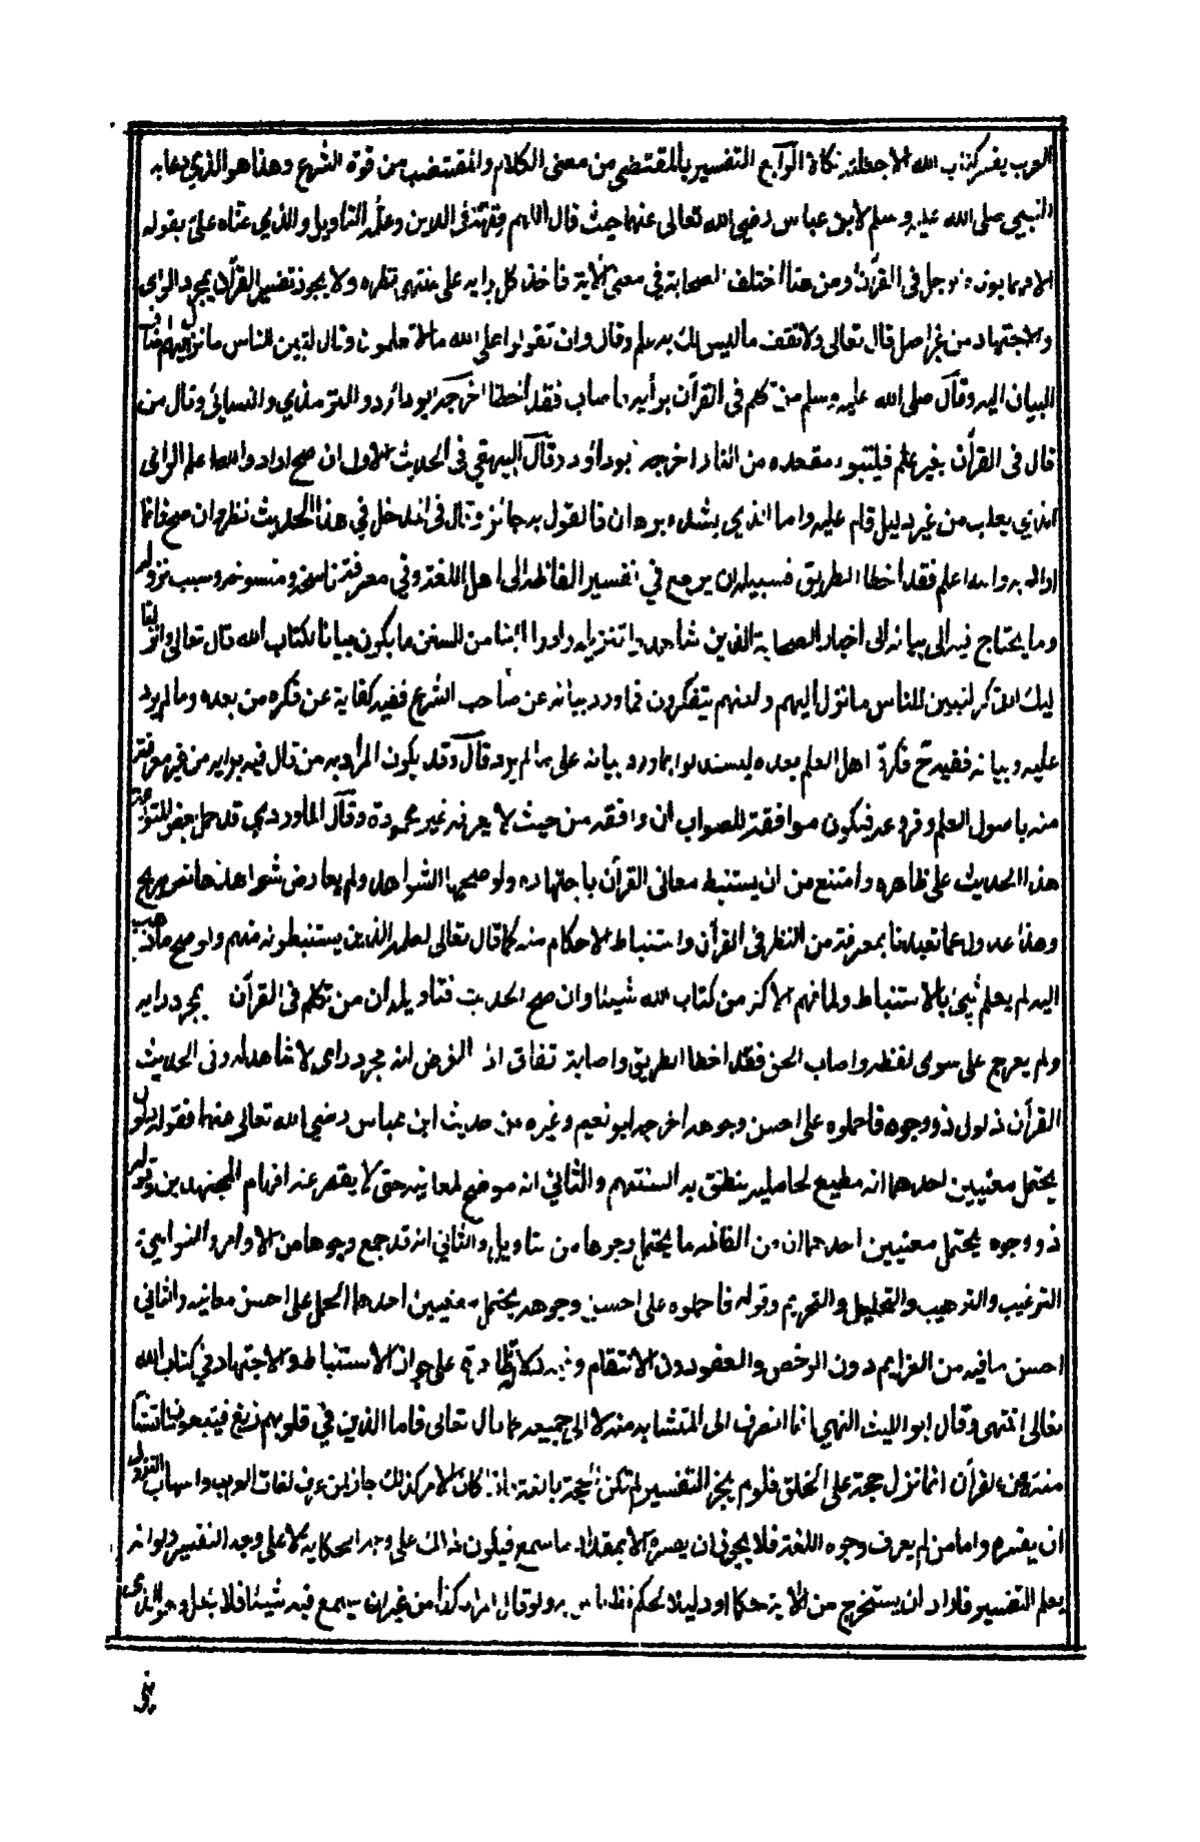 العرب يفسر كتاب الله الا جعلته نكالا الرابع التفسير بالمقتضى من معنى الكلام والمقتضب من قوة الشرع وهذا هو الذي دعا به
النبي صلى الله عليه وسلم لابن عباس رضي الله تعالى عنهما حيث قال اللهم فقهه في الدين وعلمه التاويل والذي عناه علي بقوله
الا فهما يؤتاه الرجل في القرآن ومن هنا اختلف الصحابة في معنى الآية فاخذ كل برايه على منتهى نظره ولا يجوز تفسير القرآن بمجرد الراى
والاجتهاد من غير اصل قال تعالى ولا تقف ما ليس لك به علم وقال وان تقولوا على الله ما لا تعلمون وقال لتبين للناس ما نزل اليهم فاضاف
البيان اليه وقال صلى الله عليه وسلم من تكلم في القرآن برأيه فاصاب فقد أخطا اخرجه ابو دائود والترمذي والنسائي وقال من
قال في القرآن بغير علم فليتبوء مقعده من النار اخرجه ابو داؤد وقال البيهقي في الحديث الاول ان صح اراد والله اعلم الراى
الذي يغلب من غير دليل قام عليه واما الذي يشده برهان فالقول به جائز وقال في المدخل في هذا الحديث نظر وان صح فانما
اراد به والله اعلم فقد اخطا الطريق فسبيله ان يرجع في تفسير الفاظه الى اهل اللغة وفي معرفة ناسخه ومنسوخه وسبب نزوله
وما يحتاج فيه الى بيانه الى اخبار الصحابة الذين شاهدوا تنزيله وادوا الينا من السنن ما يكون بيانا لكتاب الله قال تعالى وانزلنا
اليك الذكر لتبين للناس ما نزل اليهم ولعلهم يتفكرون فما ورد بيانه عن صاحب الشرع ففيه كفاية عن فكره من بعده وما لم يرد
عليه وبيانه ففيه ح فكرة اهل العلم بعده ليستدلوا بما ورد بيانه على ما لم يرد قال وقد يكون المراد به من قال فيه برايه من غير معرفة
منه باصول العلم وفروعه فيكون موافقته للصواب ان وافقه من حيث لا يعرفه غير محمودة وقال الماوردي قد حمل بعض المتورعة
هذا الحديث على ظاهره وامتنع من ان يستنبط معاني القرآن باجتهاده ولو صحبها الشواهد ولم يعارض شواهدها نص صريح
وهذا عدول عما تعبدنا بمعرفته من النظر في القرآن واستنباط الاحكام منه كما قال تعالى لعلمه الذين يستنبطونه منهم ولو صح ما ذهب
اليه لم يعلم شئ بالاستنباط ولما فهم الاكثر من كتاب الله شيئا وان صح الحديث فتاويله ان من تكلم في القرآن بمجرد رايه
ولم يعرج على سوى لفظه واصاب الحق فقد اخطا الطريق واصابته اتفاق اذ الغرض انه مجرد راى لا شاهد له وفى الحديث
القرآن ذلول ذو وجوه فاحملوه على احسن وجوهه اخرجه ابو نعيم وغيره من حديث ابن عباس رضي الله تعالى عنهما فقوله ذلول
يحتمل معنيين احدهما انه مطيع لحامليه ينطق به السنتهم والثاني انه موضح لمعانيه حتى لا يقصر عنه افهام المجتهدين وقوله
ذو وجوه يحتمل معنيين احدهما ان من الفاظه ما يحتمل وجوها من التاويل والثاني انه قد جمع وجوها من الاوامر والنواهي
الترغيب والترهيب والتحليل والتحريم وقوله فاحملوه على احسن وجوهه يحتمل معنيين احدهما الحمل على احسن معانيه والثاني
احسن ما فيه من العزايم دون الرخص والعفو دون الانتقام وفيه دلالة ظاهرة على جواز الاستنباط والاجتهاد في كتاب الله
تعالى انتهى وقال ابو الليث النهي انما انصرف الى المتشابه منه لا الى جميعه كما قال تعالى فاما الذين في قلوبهم زيغ فيتبعون ما تشابه
منه لان القرآن انما نزل حجة على الخلق فلو لم يجز التفسير لم تكن الحجة بالغة فاذا كان الامر كذلك جاز لمن عرف لغات العرب واسباب النزول
ان يفسره واما من لم يعرف وجوه اللغة فلا يجوز ان يفسره الا بمقدار ما سمع فيكون ذلك على وجه الحكاية لا على وجه التفسير ولو انه
يعلم التفسير فاراد ان يستخرج من الآية حكما او دليلا لحكم فلا باس به ولو قال المراد كذا من غير ان يسمع فيه شيئا فلا يحل وهو الذي